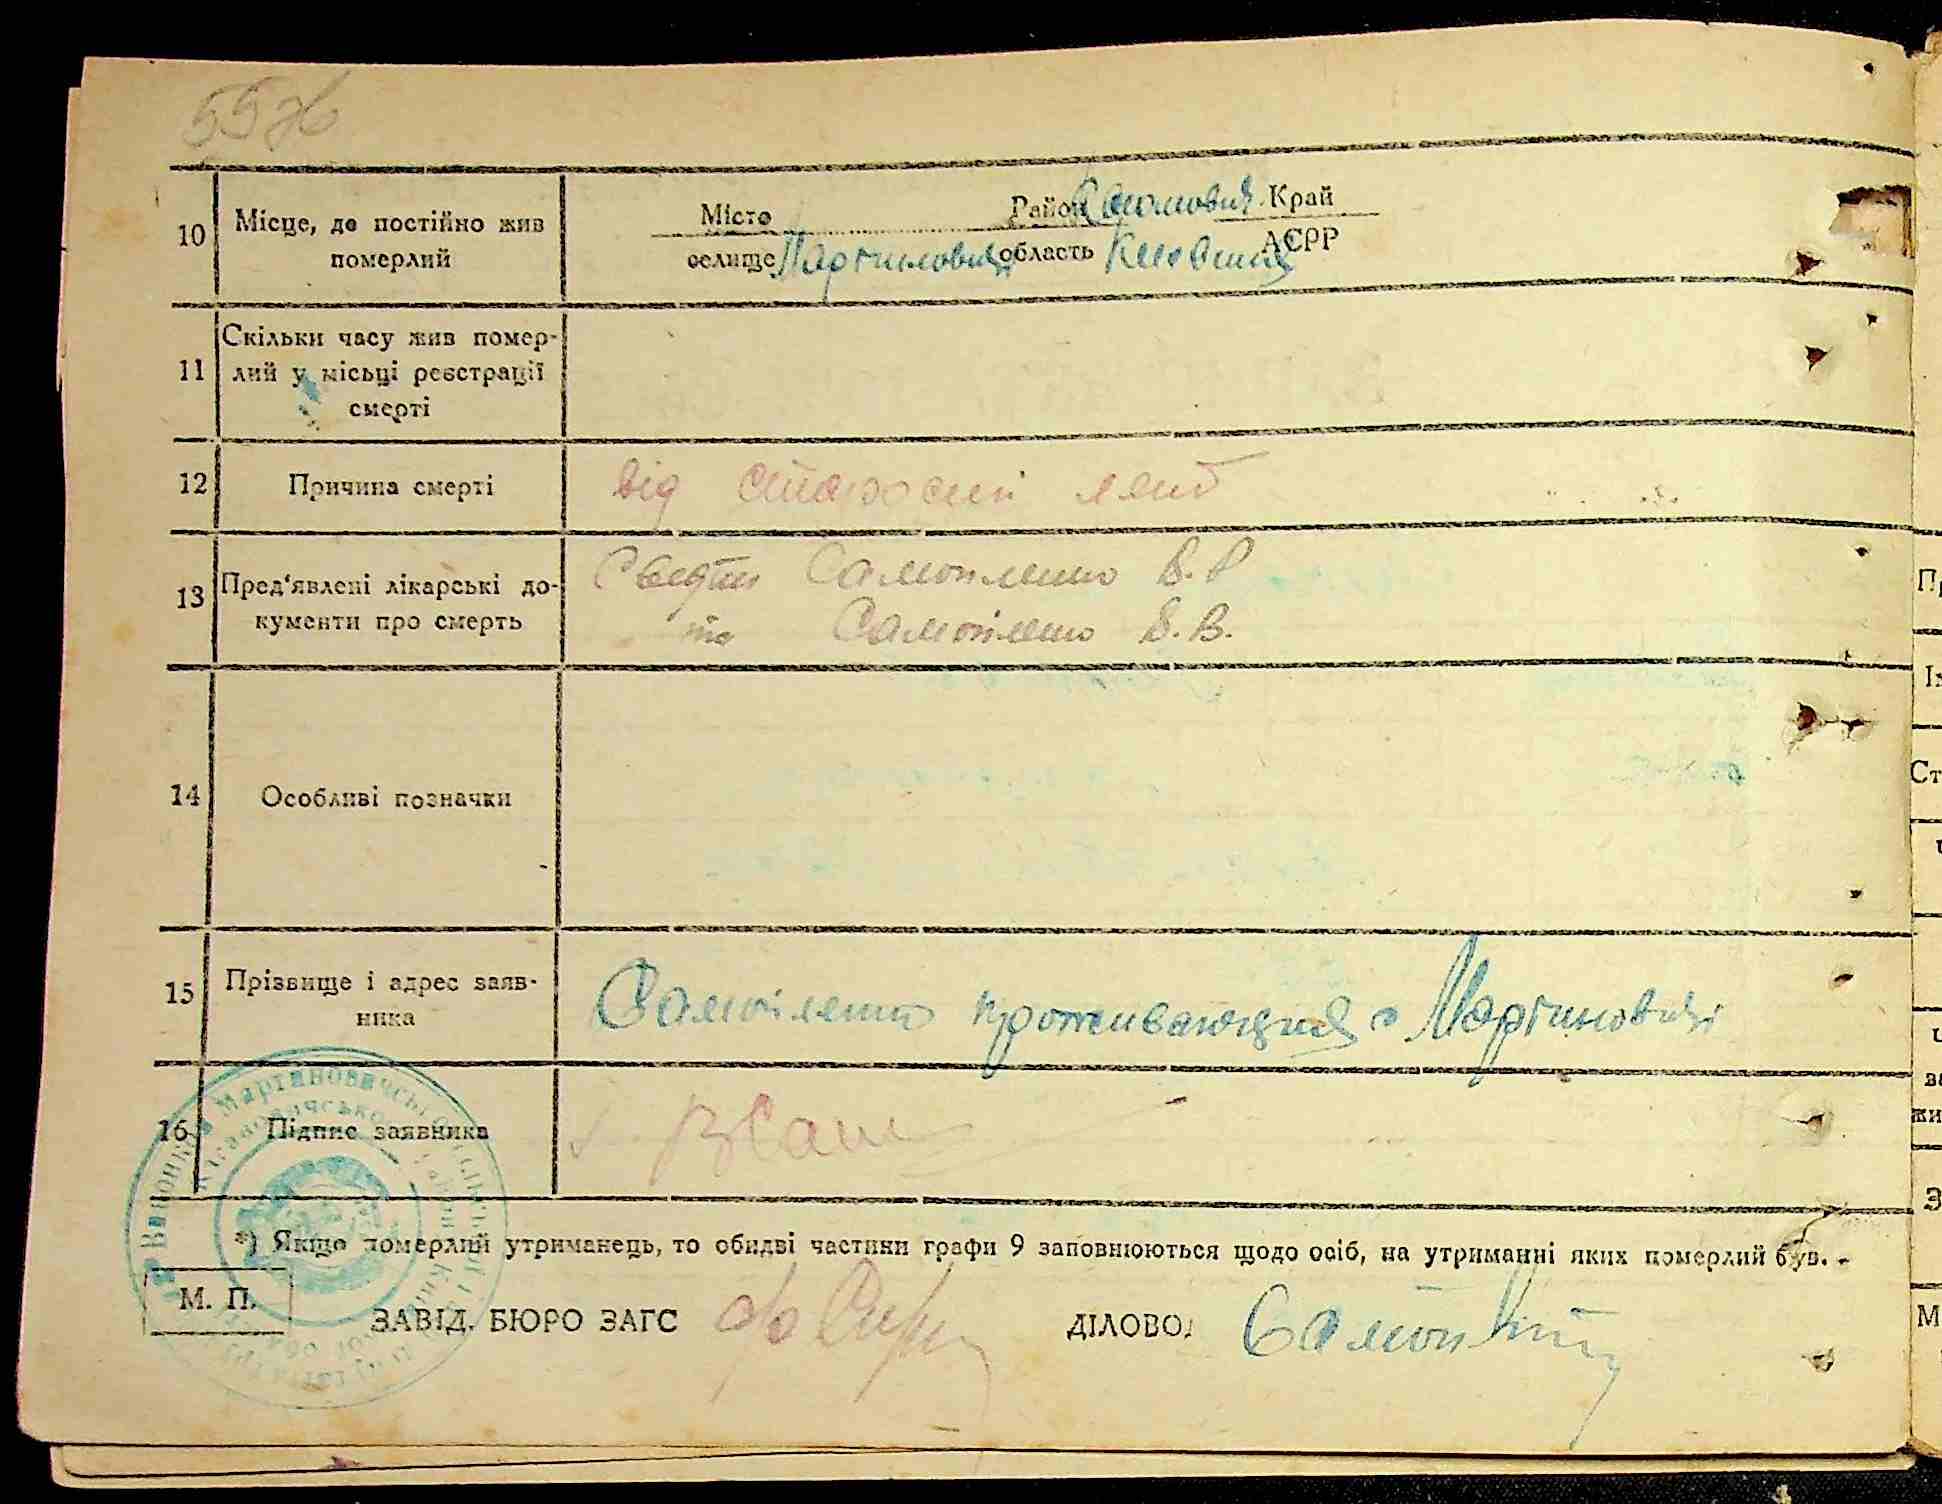 55 зв
10 Місце, де постійно жив
померлий
Місто Район Край
селище Мартиновичі область Київській АСРР
11 Скільки часу жив помер-
лий у місьці реєстрації
смерті
12 Причина смерті від старости лет
13 Пред'явлені лікарські до-
кументи про смерть
Самойленко В. Р
та Самойленко В. В.
14 Особливі позначки
15 Прізвище і адрес заяв-
ника
Самойленко проживающий с Мартиновичі
16 Підпис заявника
*) Якщо померлий утриманець, то обидві частини графи 9 заповнюються щодо осіб, на утриманні яких померлий був.
М. П.
ЗАВІД. БЮРО ЗАГС ДІЛОВОД